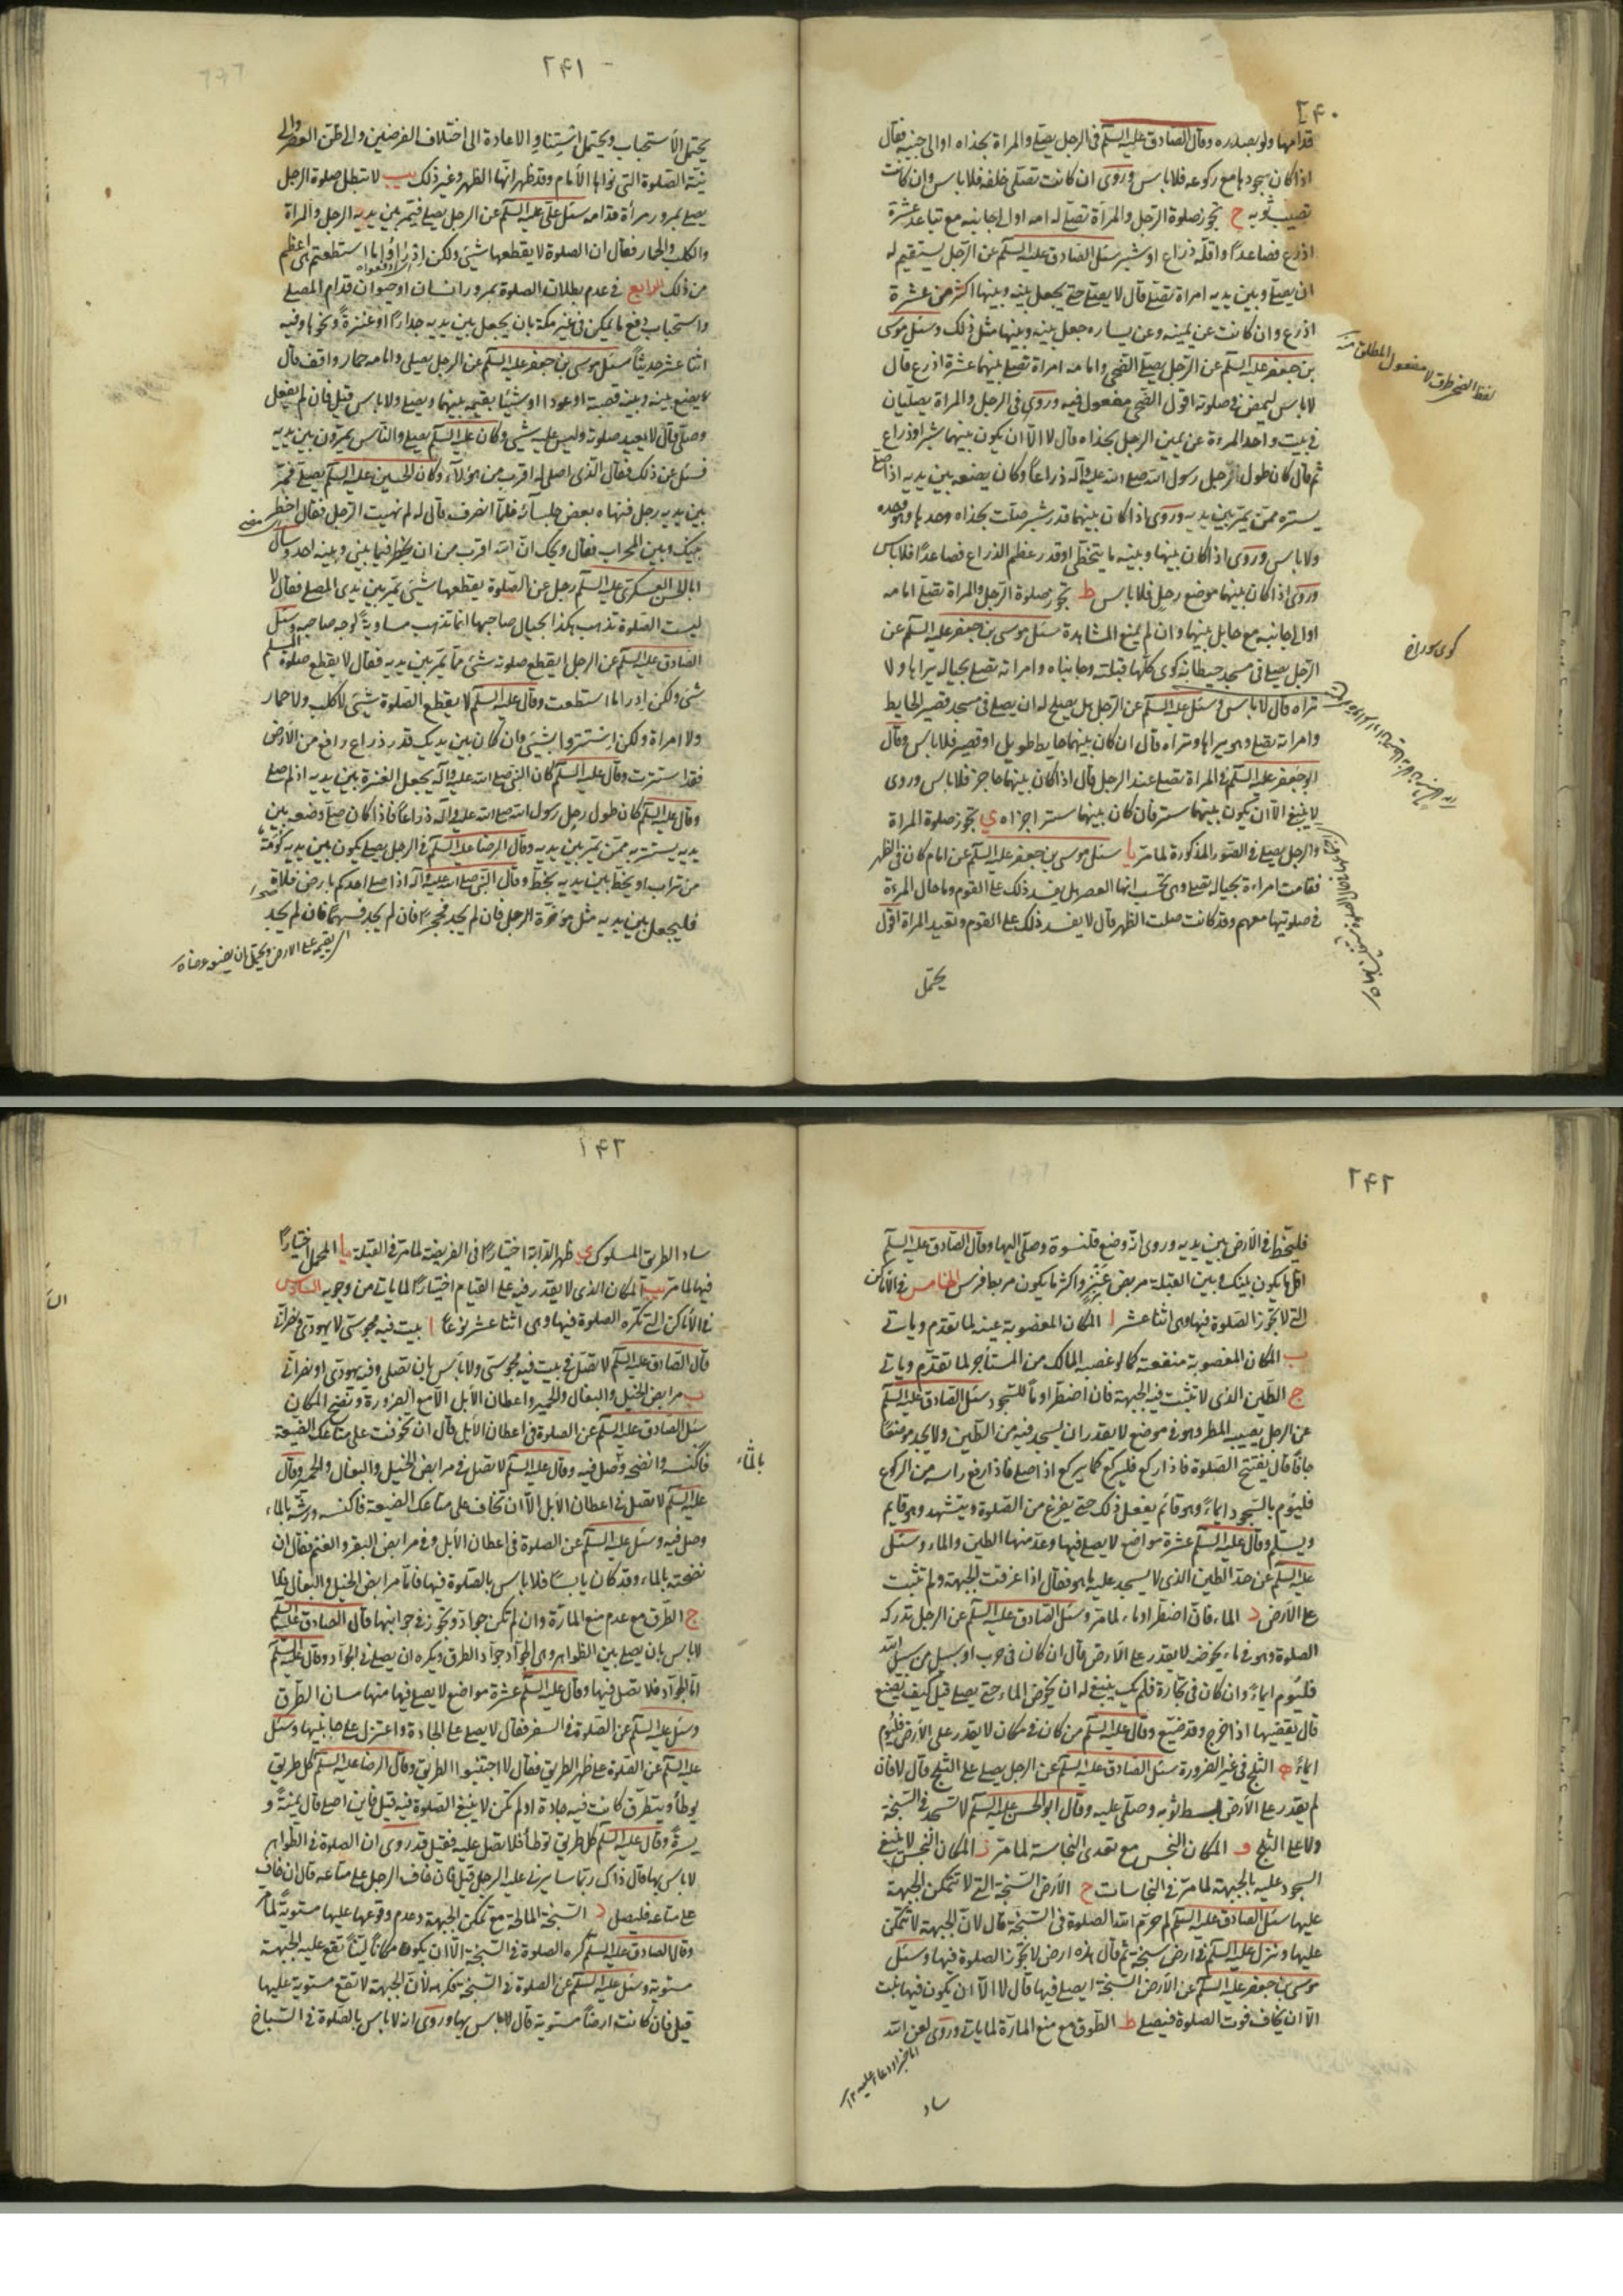 ٢۴٠
قدامها ولو بصدره وقال الصادق عليه السلم فى الرجل يصلى والمراة بحذاه او الى جنبيه فقال
اذا كان سجودها مع ركوعه فلا باس وروى ان كانت تصلى خلفه فلا باس وان كانت
تصيب ثوبه ح تجوز صلوة الرجل والمراة تصلى امامه او الى جانبيه مع تباعد عشرة
اذرع فصاعدا واقله ذراع او شبر سئل الصادق عليه السلم عن الرجل يستقيم له
ان يصلى وبين يديه امراة تصلى قال لا يصلى حتى يجعل بينه وبينها اكثر من عشرة
اذرع وان كانت عن يمينه وعن يساره جعل بينه وبينها مثل ذلك وسئل موسى
بن جعفر عليه السلم عن الرجل يصلى الضحى وامامه امراة تصلى بينهما عشرة اذرع قال
لا باس ليمض فى صلوته اقول الضحى مفعول فيه وروى فى الرجل والمراة يصليان
فى بيت واحد المرءة عن يمين الرجل بحذاه قال لا الا ان يكون بينهما شبر او ذراع
ثم قال كان طول رحل رسول الله صلى الله عليه وآله ذراعا وكان يضعه بين يديه اذا صلى
يستره ممن يمر بين يديه وروى اذا كان بينهما قدر شبر صلت بحذاه وحدها وهو وحده
ولا باس وروى اذا كان بينها وبينه ما يتخطى او قدر عظم الذراع فصاعدا فلا باس
وروى اذا كان بينهما موضع رحل فلا باس ط تجوز صلوة الرجل والمراة تصلى امامه
او الى جانبيه مع حايل بينهما وان لم يمنع المشاهدة سئل موسى بن جعفر عليه السلم عن
الرجل يصلى فى مسجد حيطانه كوى كلها قبلته وجانباه وامراته تصلى بحياله يراها ولا
تراه قال لا باس وسئل عليه السلم عن الرجل هل يصلح له ان يصلى فى مسجد قصير الحايط
وامراته تصلى وهو يراها وتراه قال ان كان بينهما حايط طويل او قصير فلا باس وقال
ابو جعفر عليه السلم فى المراة تصلى عند الرجل قال اذا كان بينهما حاجز فلا باس وروى
لا ينبغى الا ان يكون بينهما ستر فان كان بينهما ستر اجزاه ى تجوز صلوة المراة
والرجل يصلى فى الصور المذكورة لما مر يا سئل موسى بن جعفر عليه السلم عن امام كان فى الظهر
فقامت امراءة بحياله تصلى وهى تحسب انها العصر هل يفسد ذلك على القوم وما حال المرءة
فى صلوتها معهم وقد كانت صلت الظهر قال لا يفسد ذلك على القوم وتعيد المراة اقول
يحتمل
٢۴١
يحتمل الاستحباب ويحتمل استناد الاعادة الى اختلاف الفرضين والى ظن العصر والى
نية الصلوة التى نواها الامام وقد ظهر انها الظهر وغير ذلك يب لا تبطل صلوة الرجل
يصلى بمرور مرأة قدامه سئل على عليه السلم عن الرجل يصلى فيمر بين يديه الرجل والمراة
والكلب والحمار فقال ان الصلوة لا يقطعها شئ ولكن ادراوا ما استطعتم هى اعظم
من ذلك الرابع فى عدم بطلان الصلوة بمرور انسان او حيوان قدام المصلى
واستحباب دفع ما يمكن فى غير مكة بان يجعل بين يديه جدارا او عنزة ونحوها وفيه
اثنا عشر حديثا سئل موسى بن جعفر عليه السلم عن الرجل يصلى وامامه حمار واقف قال
يضع بينه وبينه قصبة او عودا او شيئا يقيمه بينهما ويصلى ولا باس قيل فان لم يفعل
وصلى قال لا يعيد صلوته وليس عليه شئ وكان عليه السلم يصلى والناس يمرون بين يديه
فسئل عن ذلك فقال الذى اصلى له اقرب من هؤلاء وكان الحسين عليه السلم يصلى فمر
بين يديه رجل فنهاه بعض جلسائه فلما انصرف قال له لم نهيت الرجل فقال خطر
بينك وبين المحراب فقال ويحك ان الله اقرب من ان يخطر فيما بينى وبينه احد وسأل
ابا الحسن العسكرى عليه السلم رجل عن الصلوة يقطعها شئ يمر بين يدى المصلى فقال لا
ليست الصلوة تذهب هكذا بحيال صاحبها انما تذهب مساوية لوجه صاحبه وسئل
الصادق عليه السلم عن الرجل ايقطع صلوته شئ مما يمر بين يديه فقال لا يقطع صلوة المسلم
شئ ولكن ادراما استطعت وقال عليه السلم لا يقطع الصلوة شئ لا كلب ولا حمار
ولا امراة ولكن استتروا بشئ وان كان بين يديك قدر ذراع رافع من الارض
فقد استترت وقال عليه السلم كان النبى صلى الله عليه وآله يجعل العنزة بين يديه اذا صلى
وقال عليه السلم كان طول رحل رسول الله صلى الله عليه وآله ذراعا فاذا كان صلى وضعه بين
يديه يستتر به ممن يمر بين يديه وقال الرضا عليه السلم فى الرجل يصلى يكون بين يديه كومة
من تراب او يخط بين يديه بخط وقال النبى صلى الله عليه وآله اذا صلى احدكم بارض فلاة
فليجعل بين يديه مثل مؤخرة الرحل فان لم يجد فحجرا فان لم يجد فسهما فان لم يجد
٢۴٢
فليخط فى الارض بين يديه وروى انه وضع قلنسوة وصلى اليها وقال الصادق عليه السلم
اقل ما يكون بينك وبين القبلة مربض عنز واكثر ما يكون مربط فرس الخامس فى الاماكن
التى لا تجوز الصلوة فيها وهى اثنا عشر ا المكان المغصوبة عينه لما تقدم وياتى
ب المكان المغصوبة منفعته كما لو غصبه المالك من المستأجر لما تقدم وياتى
ج الطين الذى لا تثبت فيه الجبهة فان اضطر اومأ للسجود سئل الصادق عليه السلم
عن الرجل يصيبه المطر وهو فى موضع لا يقدر ان يسجد فيه من الطين ولا يجد موضعا
جافا قال يفتتح الصلوة فاذا ركع فليركع كما يركع اذا صلى فاذا رفع راسه من الركوع
فليؤم بالسجود ايماء وهو قائم يفعل ذلك حتى يفرغ من الصلوة ويتشهد وهو قايم
ويسلم وقال عليه السلم عشرة مواضع لا يصلى فيها وعد منها الطين والماء وسئل
عليه السلم عن حد الطين الذى لا يسجد عليه ما هو فقال اذا غرقت الجبهة ولم تثبت
على الارض د الماء فان اضطر اوماء لما مر وسئل الصادق عليه السلم عن الرجل تدركه
الصلوة وهو فى ماء يخوضه لا يقدر على الارض قال ان كان فى حرب او سبيل من سبيل الله
فليوم ايماء وان كان فى تجارة فلم يك ينبغى له ان يخوض الماء حتى يصلى قيل كيف يصنع
قال يقضيها اذا خرج وقد ضيع وقال عليه السلم من كان فى مكان لا يقدر على الارض فليوم
ايماء ه الثلج فى غير الضرورة سئل الصادق عليه السلم عن الرجل يصلى على الثلج قال لا فان
لم يقدر على الارض بسط ثوبه وصلى عليه وقال ابو الحسن عليه السلم لا تسجد فى السبخة
ولا على الثلج و المكان النجس مع تعدى النجاسة لما مر ز المكان النجس لا ينبغى
السجود عليه بالجبهة لما مر فى النجاسات ح الارض السبخة التى لا تتمكن الجبهة
عليها سئل الصادق عليه السلم لم حرم الله الصلوة فى السبخة قال لان الجبهة لا تتمكن
عليها ونزل عليه السلم فى ارض سبخة ثم قال هذه ارض لا تجوز الصلوة فيها وسئل
موسى بن جعفر عليه السلم عن الارض السبخة ايصلى فيها قال لا الا ان يكون فيها نبت
الا ان يخاف فوت الصلوة فيصلى ط الطرق مع منع المارة لما ياتى وروى لعن الله
ساد
٢۴٣
ساد الطريق المسلوك ى ظهر الدابة اختيارا فى الفريضة لما مر فى القبلة يا المحمل اختيارا
فيها لما مر يب المكان الذى لا يقدر فيه على القيام اختيارا لما ياتى من وجوبه السادس
فى الاماكن التى تكره الصلوة فيها وهى اثنا عشر نوعا ا بيت فيه مجوسى لا يهودى ونصرانى
قال الصادق عليه السلم لا تصل فى بيت فيه مجوسى ولا باس بان تصلى وفيه يهودى او نصرانى
ب مرابض الخيل والبغال والحمير واعطان الابل الا مع الضرورة ونضح المكان
سئل الصادق عليه السلم عن الصلوة فى اعطان الابل قال ان تخوفت على متاعك الضيعة
فاكنسه وانضحه وصل فيه وقال عليه السلم لا تصل فى مرابض الخيل والبغال والحمير وقال
عليه السلم لا تصل فى اعطان الابل الا ان تخاف على متاعك الضيعة فاكنسه ورشه بالماء
وصل فيه وسئل عليه السلم عن الصلوة فى اعطان الابل وفى مرابض البقر والغنم فقال ان
نضحته بالماء وقد كان يابسا فلا باس بالصلوة فيها فاما مرابض الخيل والبغال فلا
ج الطرق مع عدم منع المارة وان لم تكن جواد وتجوز فى جوانبها قال الصادق عليه السلم
لا باس بان يصلى بين الظواهر وهى الجواد جواد الطرق ويكره ان يصلى فى الجواد وقال عليه السلم
اما الجواد فلا تصل فيها وقال عليه السلم عشرة مواضع لا يصلى فيها منها مسان الطرق
وسئل عليه السلم عن الصلوة فى السفر فقال لا يصلى على الجادة واعتزل على جانبيها وسئل
عليه السلم عن الصلوة على ظهر الطريق فقال لا اجتنبوا الطريق وقال الرضا عليه السلم كل طريق
يوطأ ويتطرق كانت فيه جادة او لم تكن لا ينبغى الصلوة فيه قيل فاين اصلى قال يمنة و
يسرة وقال عليه السلم كل طريق توطأ فلا تصل عليه فقيل قد روى ان الصلوة فى الظواهر
لا باس بها قال ذاك ربما سايرنى عليه الرجل قيل فان خاف الرجل على متاعه قال ان خاف
على متاعه فليصل د السبخة المالحة مع تمكن الجبهة وعدم وقوعها عليها مستوية لما مر
وقال الصادق عليه السلم كره الصلوة فى السبخة الا ان يكون مكانا لينا تقع عليه الجبهة
مستوية وسئل عليه السلم عن الصلوة فى السبخة فكرهه لان الجبهة لا تقع مستوية عليها
قيل فان كانت ارضا مستوية قال لا باس بها وروى انه لا باس بالصلوة فى السباخ